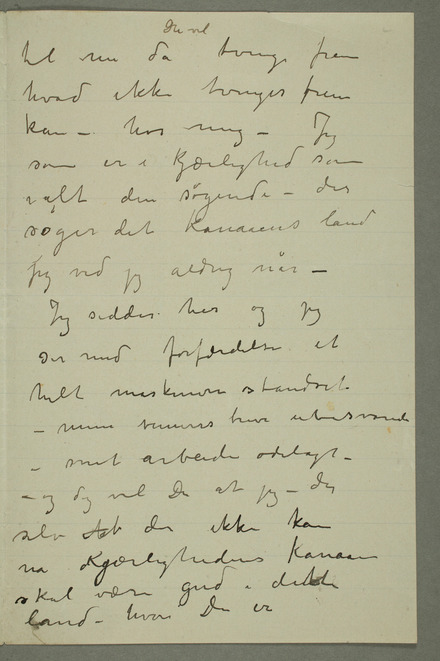 Du vil
til nu da tvinge frem
hvad ikke tvinges frem
kan – hos mig – Jeg
som er i Kjærlighed som
i alt den søgende – der
søger det Kanaaens land
jeg ved jeg aldrig når –
Jeg sidder her og jeg
ser med forfærdelse et
helt menneske standset
– mine venners
– mit arbeide ødelagt –
– og dog vil De at jeg – der
selv der ikke kan
na Kjærlighedens Kanaan
skal være gud i dette
land – hvor Du er